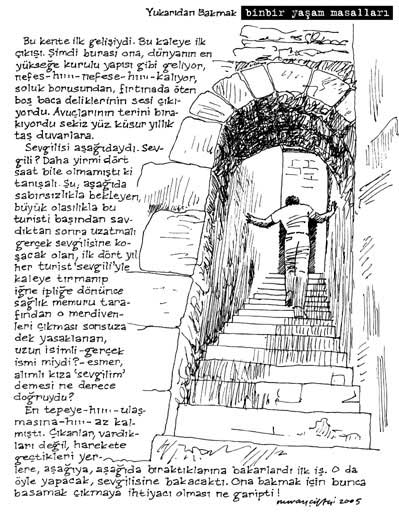 Yukarıdan Bakmak binbir yaşam masalları
Bu kente ilk gelişiydi. Bu kaleye ilk
çıkışı. Şimdi burası ona, dünyanın en
yükseğe kurulu yapısı gibi geliyor,
nefes-hııı-nefese-hııı-kalıyor,
soluk borusundan, fırtınada öten
boş baca deliklerinin sesi çıkı-
yordu. Avuçlarının terini bıra-
kıyordu sekiz yüz küsur yıllık
taş duvarlara.
Sevgilisi aşağıdaydı. Sev-
gili? Daha yirmi dört
saat bile olmamıştı ki
tanışalı. Şu, aşağıda
sabırsızlıkla bekleyen,
büyük olasılıkla bu
turisti başından sav-
dıktan sonra uzatmalı
gerçek sevgilisine ko-
şacak olan, ilk dört yıl
her turist 'sevgili'yle
kaleye tırmanıp
iğne ipliğe dönünce
sağlık memuru tara-
fından o merdiven-
leri çıkması sonsuza
dek yasaklanan,
uzun isimli-gerçek
ismi miydi?-esmer,
alımlı kıza 'sevgilim'
demesi ne derece
doğruydu?
En tepeye-hııı-ulaş-
masına-hııı-az kal-
mıştı. Çıkanlar, vardık-
ları değil, harekete
geçtikleri yer-
lere, aşağıya, aşağıda bıraktıklarına bakarlardı ilk iş. O da
öyle yapacak, sevgilisine bakacaktı. Ona bakmak için bunca
basamak çıkmaya ihtiyacı olması ne garipti!
2005